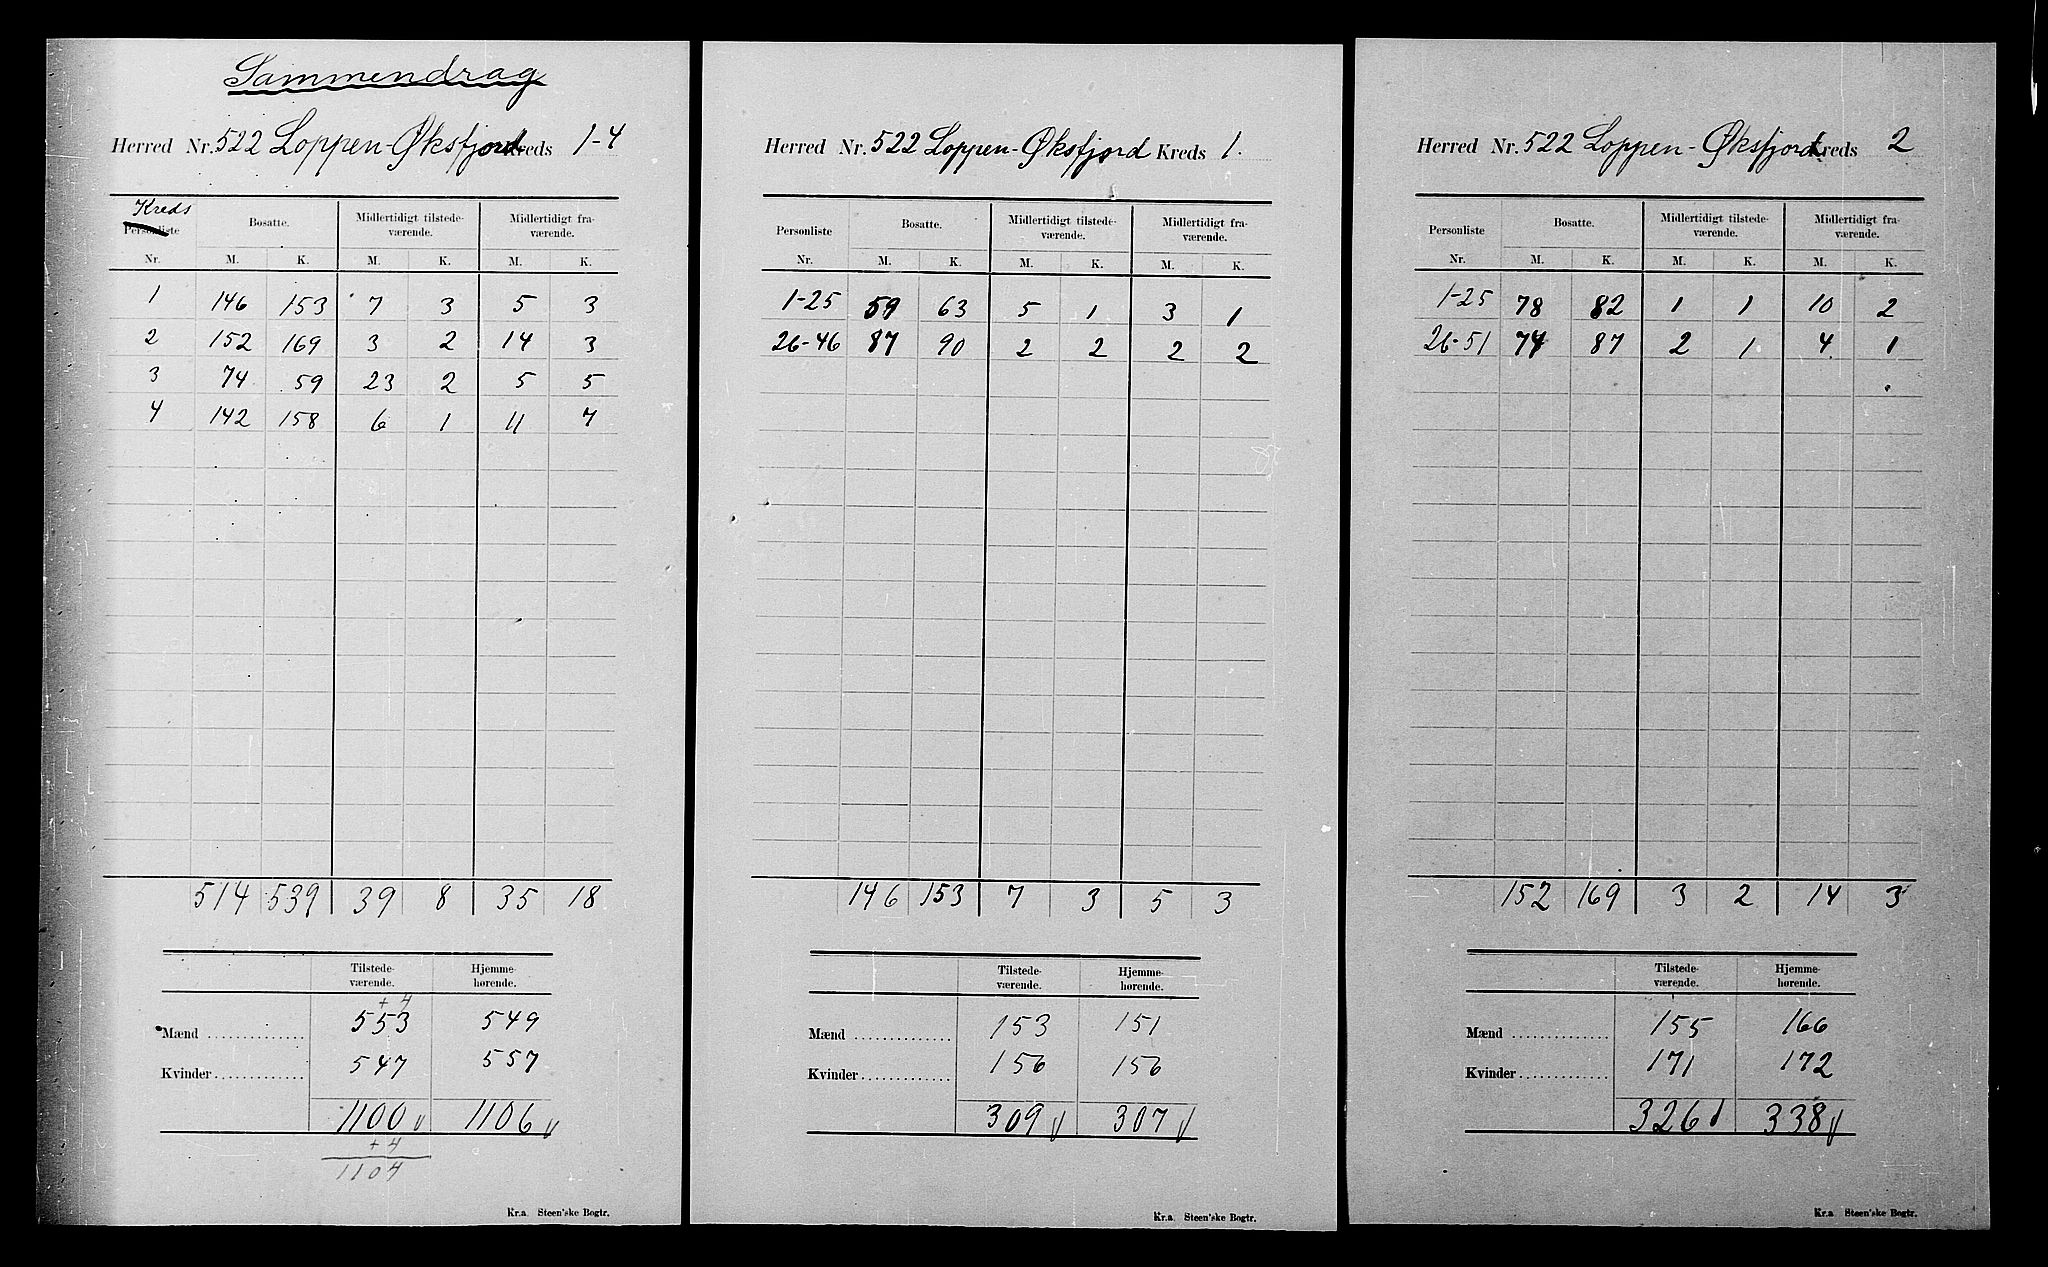 Sammendrag
Herred Nr. 522 Loppen-Øksfjord Kreds 1-4
Kreds
Personliste Bosatte. Midlertidigt tilstede-værende. Midlertidigt fra-værende.
Nr. M. K. M. K. M. K.
1 146 153 7 3 5 3
2 152 169 3 2 14 3
3 74 59 23 2 5 5
4 142 158 6 1 11 7
514 539 39 8 35 18
Tilstede-værende. Hjemme-hørende.
+4
Mænd 553 549
Kvinder 547 557
1100 1106
+4
1104
Kr.a Steen'ske Bogtr.
Herred Nr. 522 Loppen-Øksfjord Kreds 1.
Personliste Bosatte. Midlertidigt tilstede-værende. Midlertidigt fra-værende.
Nr. M. K. M. K. M. K.
1-25 59 63 5 1 3 1
26-46 87 90 2 2 2 2
146 153 7 3 5 3
Tilstede-værende. Hjemme-hørende.
Mænd 153 151
Kvinder 156 156
309 307
Kr.a Steen'ske Bogtr.
Herred Nr. 522 Loppen-Øksfjord Kreds 2
Personliste Bosatte. Midlertidigt tilstede-værende. Midlertidigt fra-værende.
Nr. M. K. M. K. M. K.
1-25 78 82 1 1 10 2
26-51 74 87 2 1 4 1
152 169 3 2 14 3
Tilstede-værende. Hjemme-hørende.
Mænd 155 166
Kvinder 171 172
326 338
Kr.a Steen'ske Bogtr.